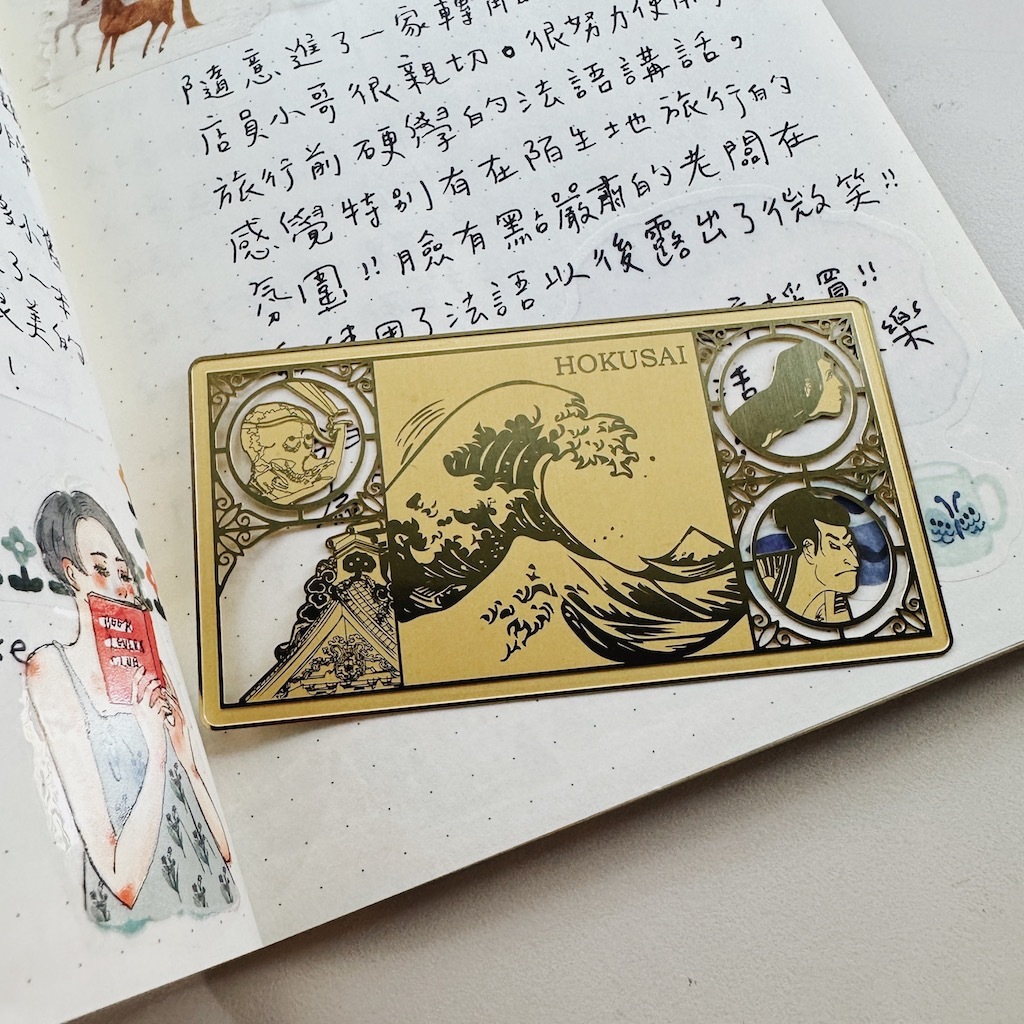 隨意進了一家轉角
店員小哥很親切。很努力使用
旅行前硬學的法語講話，
感覺特別有在陌生地旅行的
氛圍!! 臉有點嚴肅的老闆在
用了法語以後露出了微笑!!
買!!
樂
HOKUSAI
了一本
很美的
!
BOOK
LOVER
CLUB